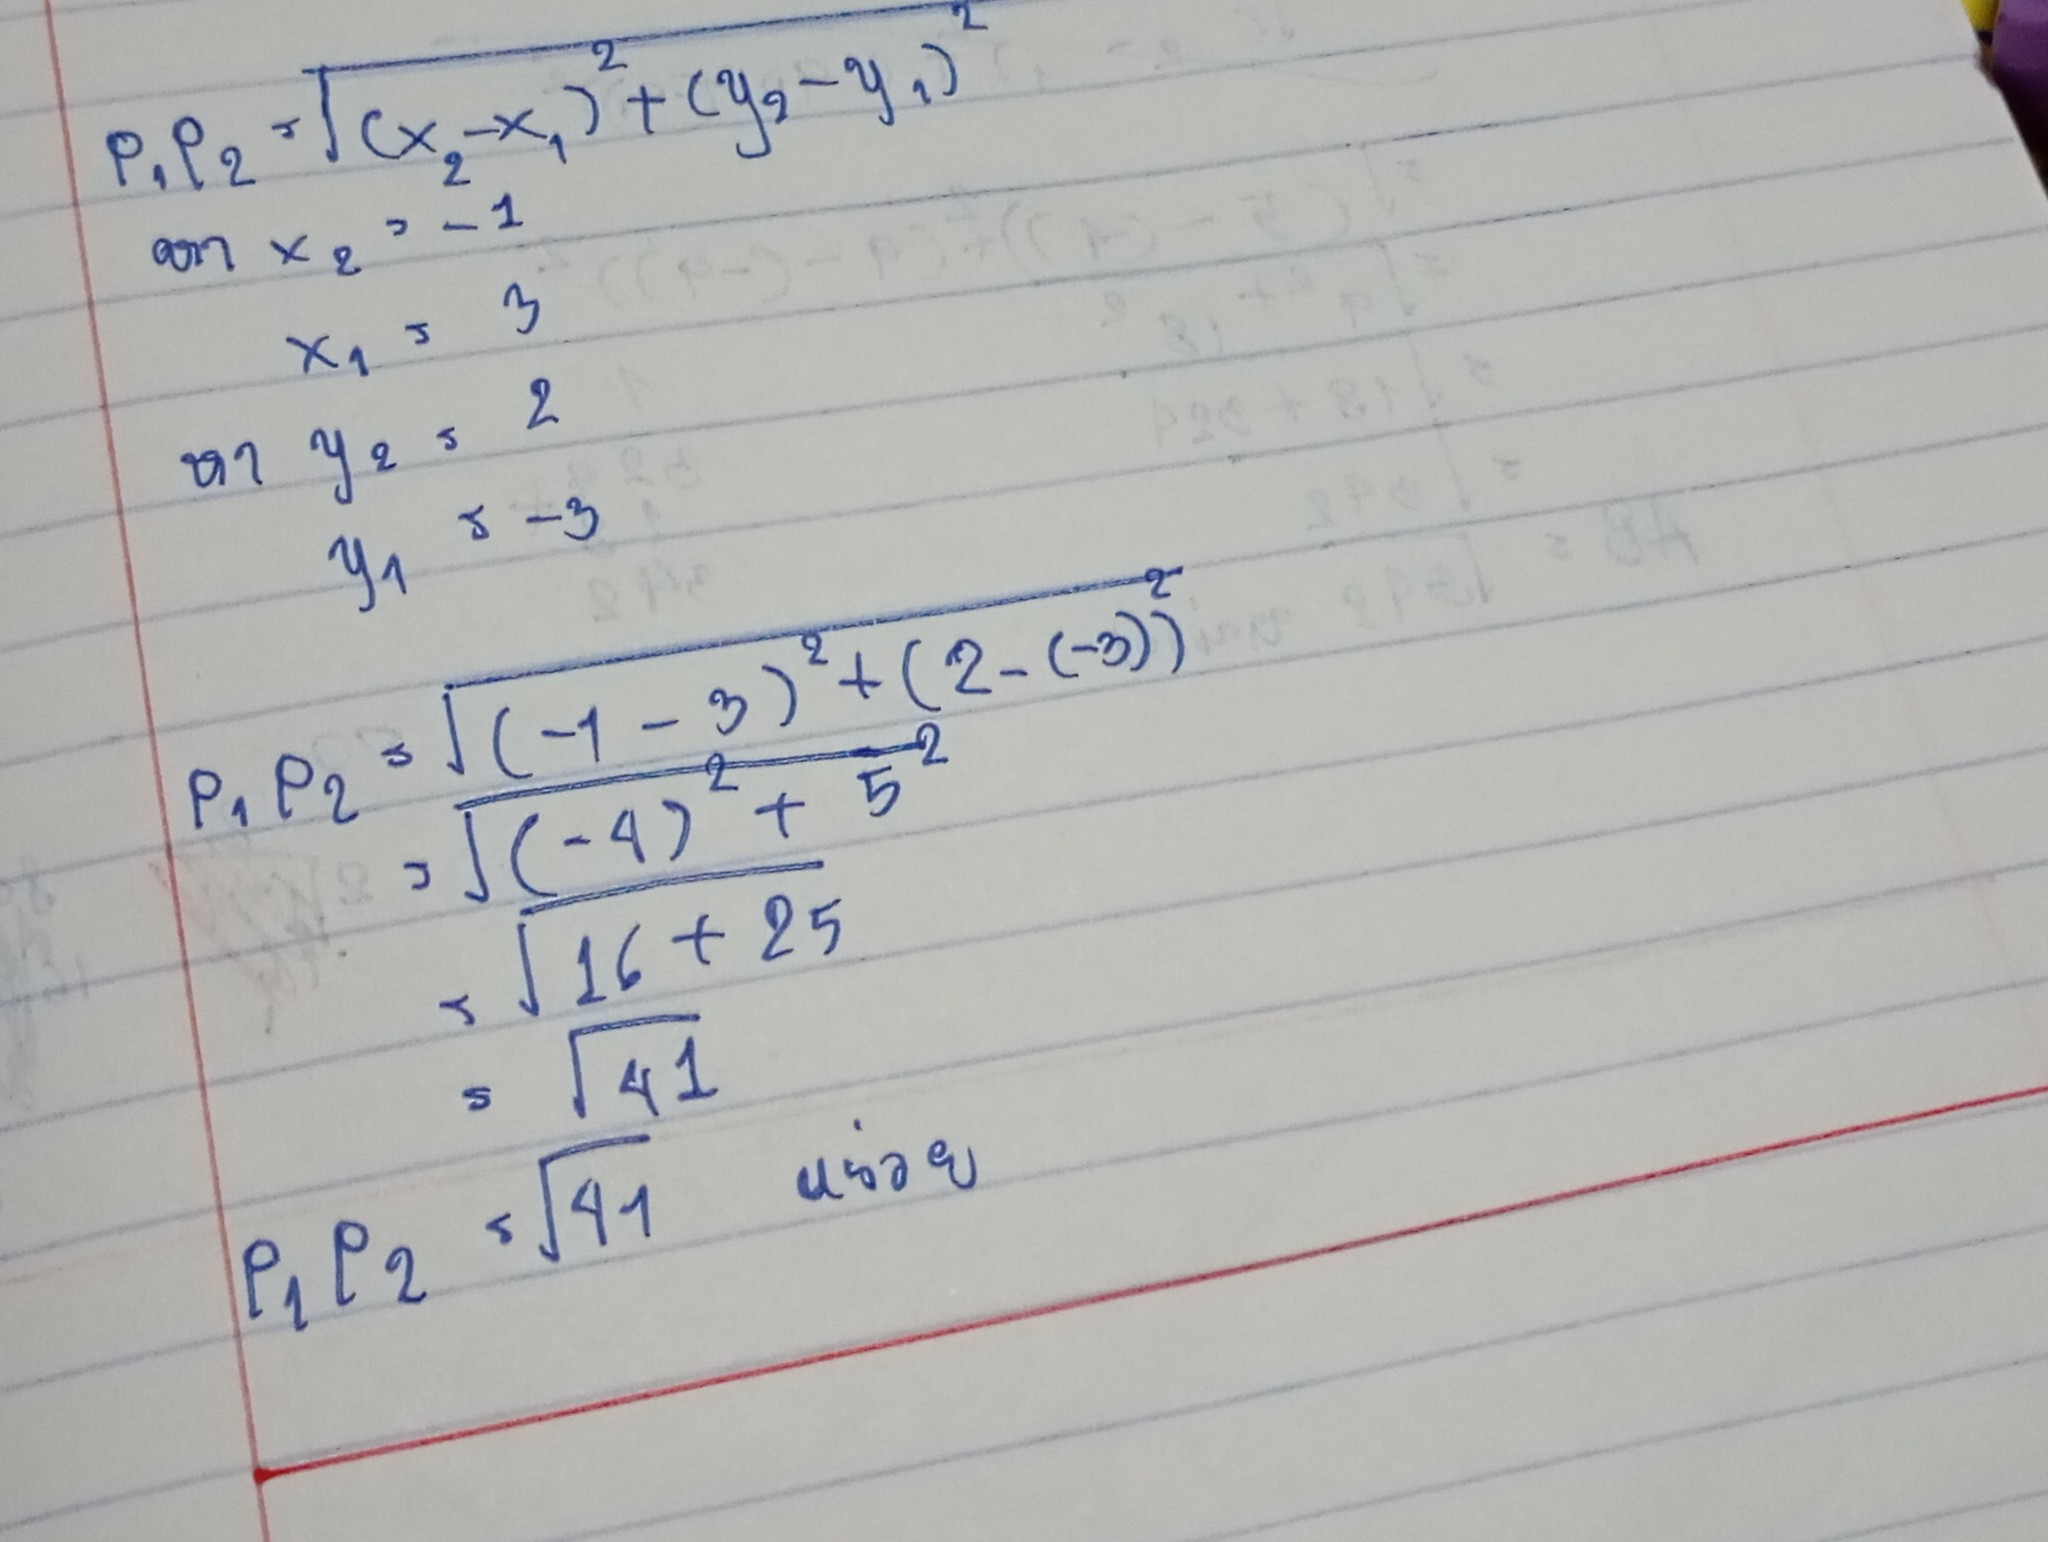 P₁P₂ = √(x₂-x₁)² + (y₂-y₁)²
จาก x₂ = -1
x₁ = 3
จาก y₂ = 2
y₁ = -3
P₁P₂ = √(-1-3)² + (2-(-3))²
= √(-4)² + 5²
= √16 + 25
= √41
P₁P₂ = √41 หน่วย